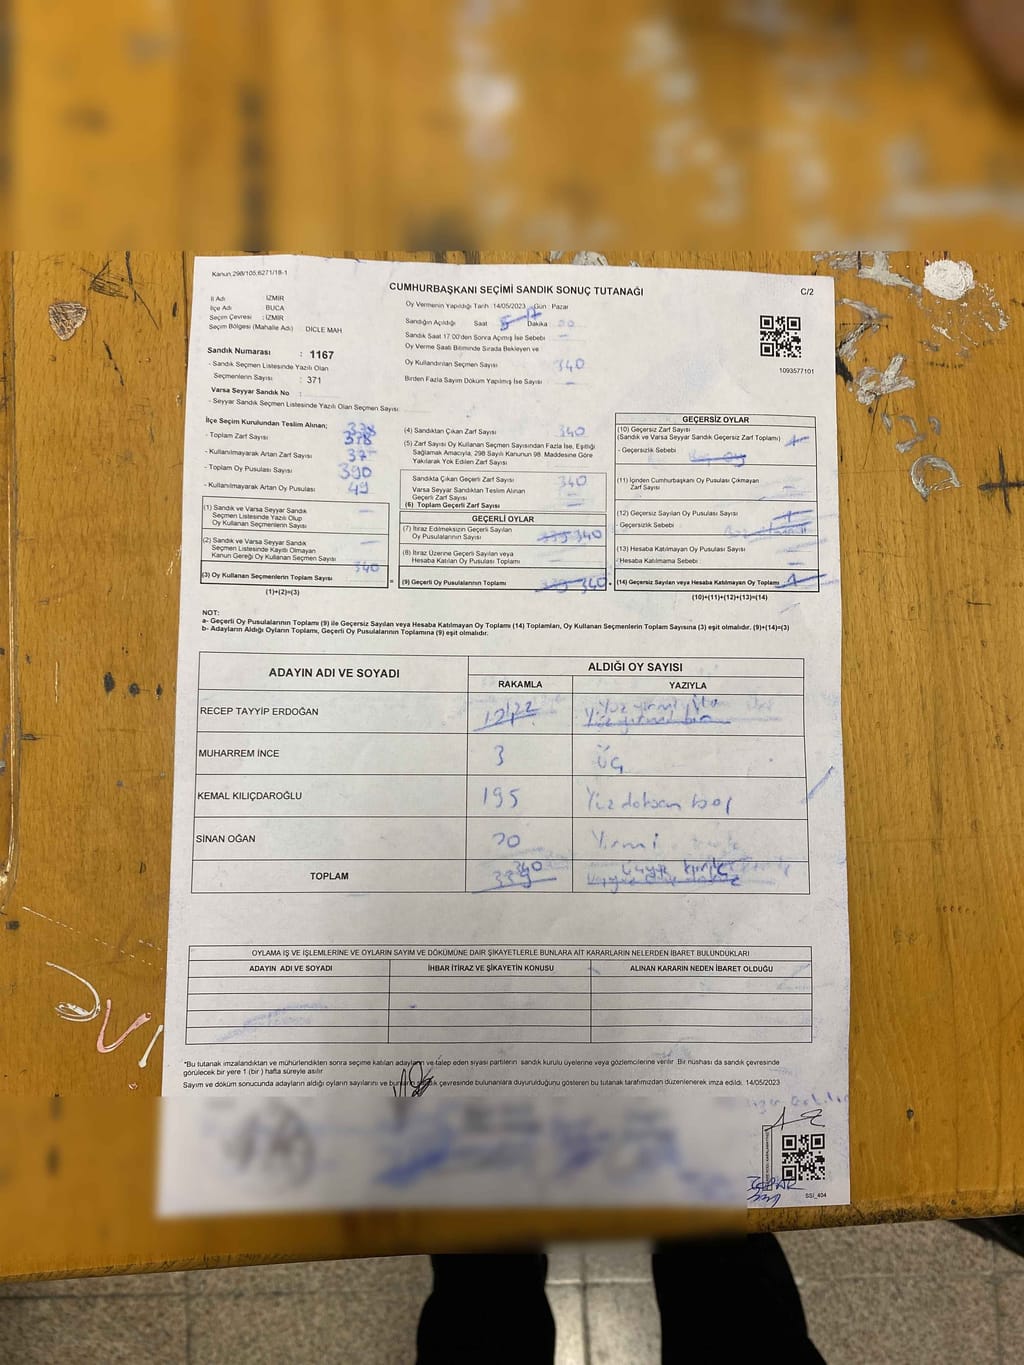 Kanun:298/105;6271/18-1
CUMHURBAŞKANI SEÇİMİ SANDIK SONUÇ TUTANAĞI
C/2
İl Adı : İZMİR
İlçe Adı BUCA
Seçim Çevresi : İZMİR
Seçim Bölgesi (Mahalle Adı) : DİCLE MAH
Sandık Numarası : 1167
- Sandık Seçmen Listesinde Yazılı Olan
Seçmenlerin Sayısı : 371
Varsa Seyyar Sandık No :
- Seyyar Sandık Seçmen Listesinde Yazılı Olan Seçmen Sayısı:
Oy Vermenin Yapıldığı Tarih :14/05/2023 Gün : Pazar
Sandığın Açıldığı Saat 17 Dakika : 00
Sandık Saat 17:00'den Sonra Açmış İse Sebebi
Oy Verme Saati Bitiminde Sırada Bekleyen ve
Oy Kullandırılan Seçmen Sayısı 340
Birden Fazla Sayım Döküm Yapılmış İse Sayısı
1093577101
İlçe Seçim Kurulundan Teslim Alınan; 378
- Toplam Zarf Sayısı 378
- Kullanılmayarak Artan Zarf Sayısı 37
- Toplam Oy Pusulası Sayısı 390
- Kullanılmayarak Artan Oy Pusulası 49
(1) Sandık ve Varsa Seyyar Sandık
Seçmen Listesinde Yazılı Olup
Oy Kullanan Seçmenlerin Sayısı
(2) Sandık ve Varsa Seyyar Sandık
Seçmen Listesinde Kayıtlı Olmayan
Kanun Gereği Oy Kullanan Seçmen Sayısı
(3) Oy Kullanan Seçmenlerin Toplam Sayısı 340
(1)+(2)=(3)
(4) Sandıktan Çıkan Zarf Sayısı 340
(5) Zarf Sayısı Oy Kullanan Seçmen Sayısından Fazla İse, Eşitliği
Sağlamak Amacıyla, 298 Sayılı Kanunun 98. Maddesine Göre
Yakılarak Yok Edilen Zarf Sayısı
Sandıkta Çıkan Geçerli Zarf Sayısı 340
Varsa Seyyar Sandıktan Teslim Alınan
Geçerli Zarf Sayısı
(6) Toplam Geçerli Zarf Sayısı
GEÇERLİ OYLAR
(7) İtiraz Edilmeksizin Geçerli Sayılan
Oy Pusulalarının Sayısı 339 340
(8) İtiraz Üzerine Geçerli Sayılan veya
Hesaba Katılan Oy Pusulası Toplamı
(9) Geçerli Oy Pusulalarının Toplamı 339 340
GEÇERSİZ OYLAR
(10) Geçersiz Zarf Sayısı
(Sandık ve Varsa Seyyar Sandık Geçersiz Zarf Toplamı) 1
- Geçersizlik Sebebi
(11) İçinden Cumhurbaşkanı Oy Pusulası Çıkmayan
Zarf Sayısı
(12) Geçersiz Sayılan Oy Pusulası Sayısı 1
- Geçersizlik Sebebi
(13) Hesaba Katılmayan Oy Pusulası Sayısı
- Hesaba Katılmama Sebebi
(14) Geçersiz Sayılan veya Hesaba Katılmayan Oy Toplamı 1
(10)+(11)+(12)+(13)=(14)
NOT:
a- Geçerli Oy Pusulalarının Toplamı (9) ile Geçersiz Sayılan veya Hesaba Katılmayan Oy Toplamı (14) Toplamları, Oy Kullanan Seçmenlerin Toplam Sayısına (3) eşit olmalıdır. (9)+(14)=(3)
b- Adayların Aldığı Oyların Toplamı, Geçerli Oy Pusulalarının Toplamına (9) eşit olmalıdır.
ADAYIN ADI VE SOYADI ALDIĞI OY SAYISI
RAKAMLA YAZIYLA
RECEP TAYYİP ERDOĞAN 121 122 Yüz yirmi iki Yüz yirmi bir
MUHARREM İNCE 3 Üç
KEMAL KILIÇDAROĞLU 195 Yüz doksan beş
SİNAN OĞAN 20 Yirmi
TOPLAM 339 340 Üçyüz kırk
OYLAMA İŞ VE İŞLEMLERİNE VE OYLARIN SAYIM VE DÖKÜMÜNE DAİR ŞİKAYETLERLE BUNLARA AİT KARARLARIN NELERDEN İBARET BULUNDUKLARI
ADAYIN ADI VE SOYADI İHBAR İTİRAZ VE ŞİKAYETİN KONUSU ALINAN KARARIN NEDEN İBARET OLDUĞU
*Bu tutanak imzalandıktan ve mühürlendikten sonra seçime katılan adayların ve talep eden siyasi partilerin sandık kurulu üyelerine veya gözlemcilerine verilir. Bir nüshası da sandık çevresinde
görülecek bir yere 1 (bir ) hafta süreyle asılır
Sayım ve döküm sonucunda adayların aldığı oyların sayılarını ve bunların sandık çevresinde bulunanlara duyurulduğunu gösteren bu tutanak tarafımızdan düzenlenerek imza edildi. 14/05/2023
SSİ_404